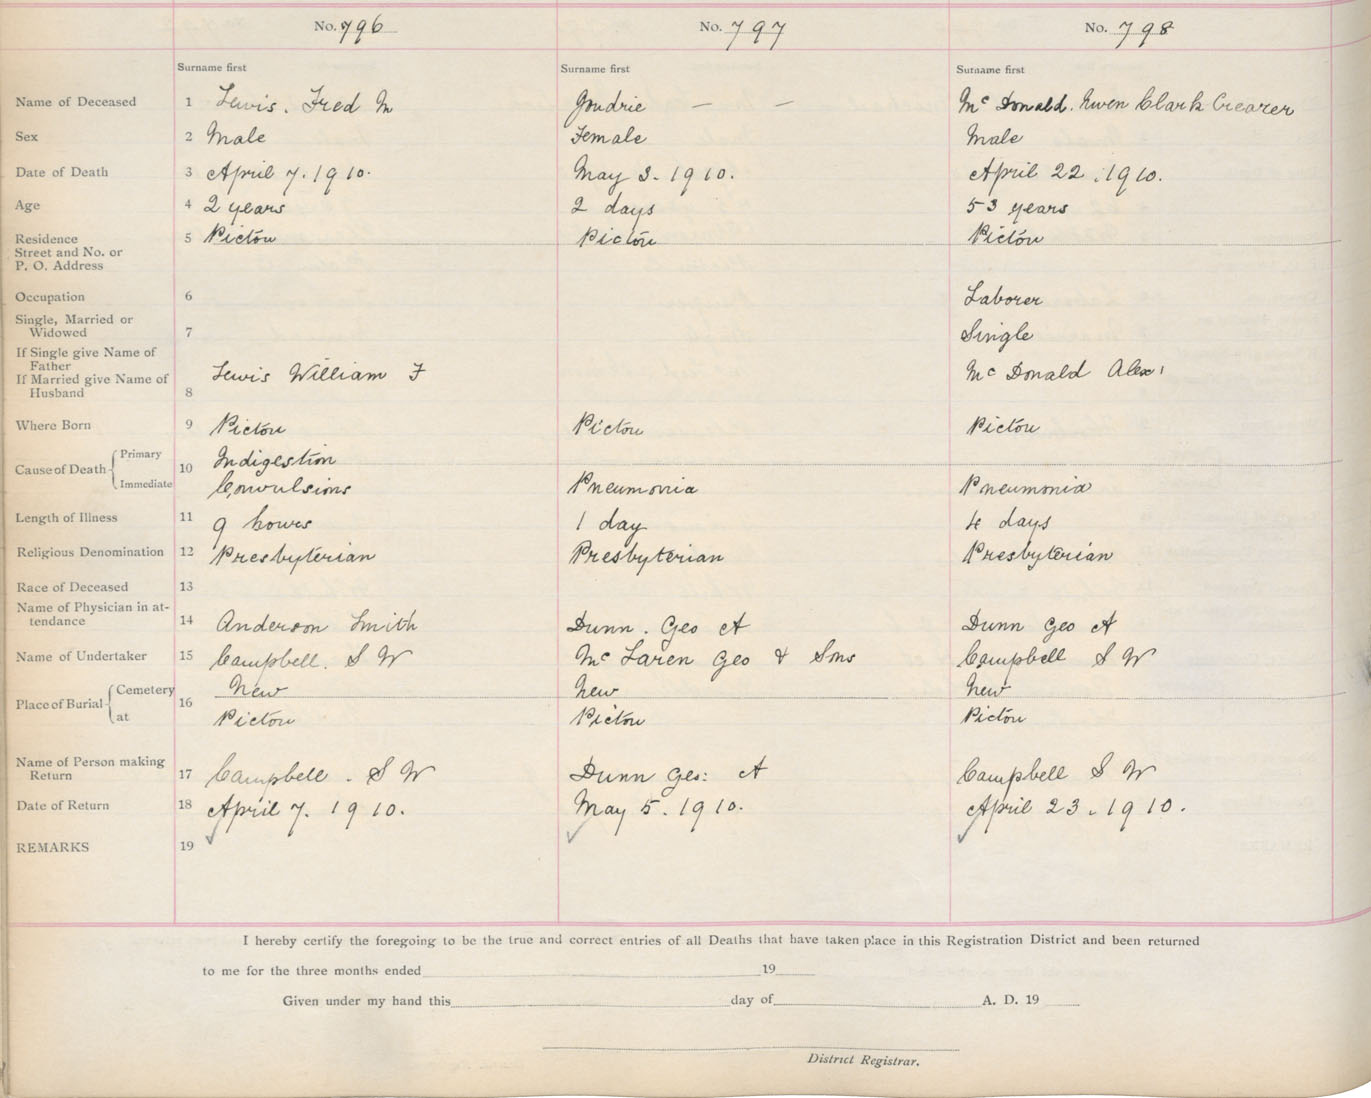 No. 796 No. 797 No. 798
Surname first Surname first Surname first
Name of Deceased 1 Lewis. Fred M Goudrie — — Mc Donald. Owen Clark Crearer
Sex 2 Male Female Male
Date of Death 3 April 7. 1910. May 3. 1910. April 22. 1910.
Age 4 2 years 2 days 53 years
Residence 5 Pictou Pictou Pictou
Street and No. or
P. O. Address
Occupation 6 Laborer
Single, Married or
Widowed 7 Single
If Single give Name of
Father
Lewis William F Mc Donald Alex
If Married give Name of
Husband 8
Where Born 9 Pictou Pictou Pictou
Cause of Death Primary 10 Indigestion
Immediate Convulsions Pneumonia Pneumonia
Length of Illness 11 9 hours 1 day 4 days
Religious Denomination 12 Presbyterian Presbyterian Presbyterian
Race of Deceased 13
Name of Physician in at-
tendance 14 Anderson Smith Dunn. Geo A Dunn Geo A
Name of Undertaker 15 Campbell. S W Mc Laren Geo & Sons Campbell S W
Place of Burial Cemetery 16 New New New
at Pictou Pictou Pictou
Name of Person making
Return 17 Campbell. S W Dunn Geo: A Campbell S W
Date of Return 18 April 7. 1910. May 5. 1910. April 23. 1910.
REMARKS 19
I hereby certify the foregoing to be the true and correct entries of all Deaths that have taken place in this Registration District and been returned
to me for the three months ended 19
Given under my hand this day of A. D. 19
District Registrar.